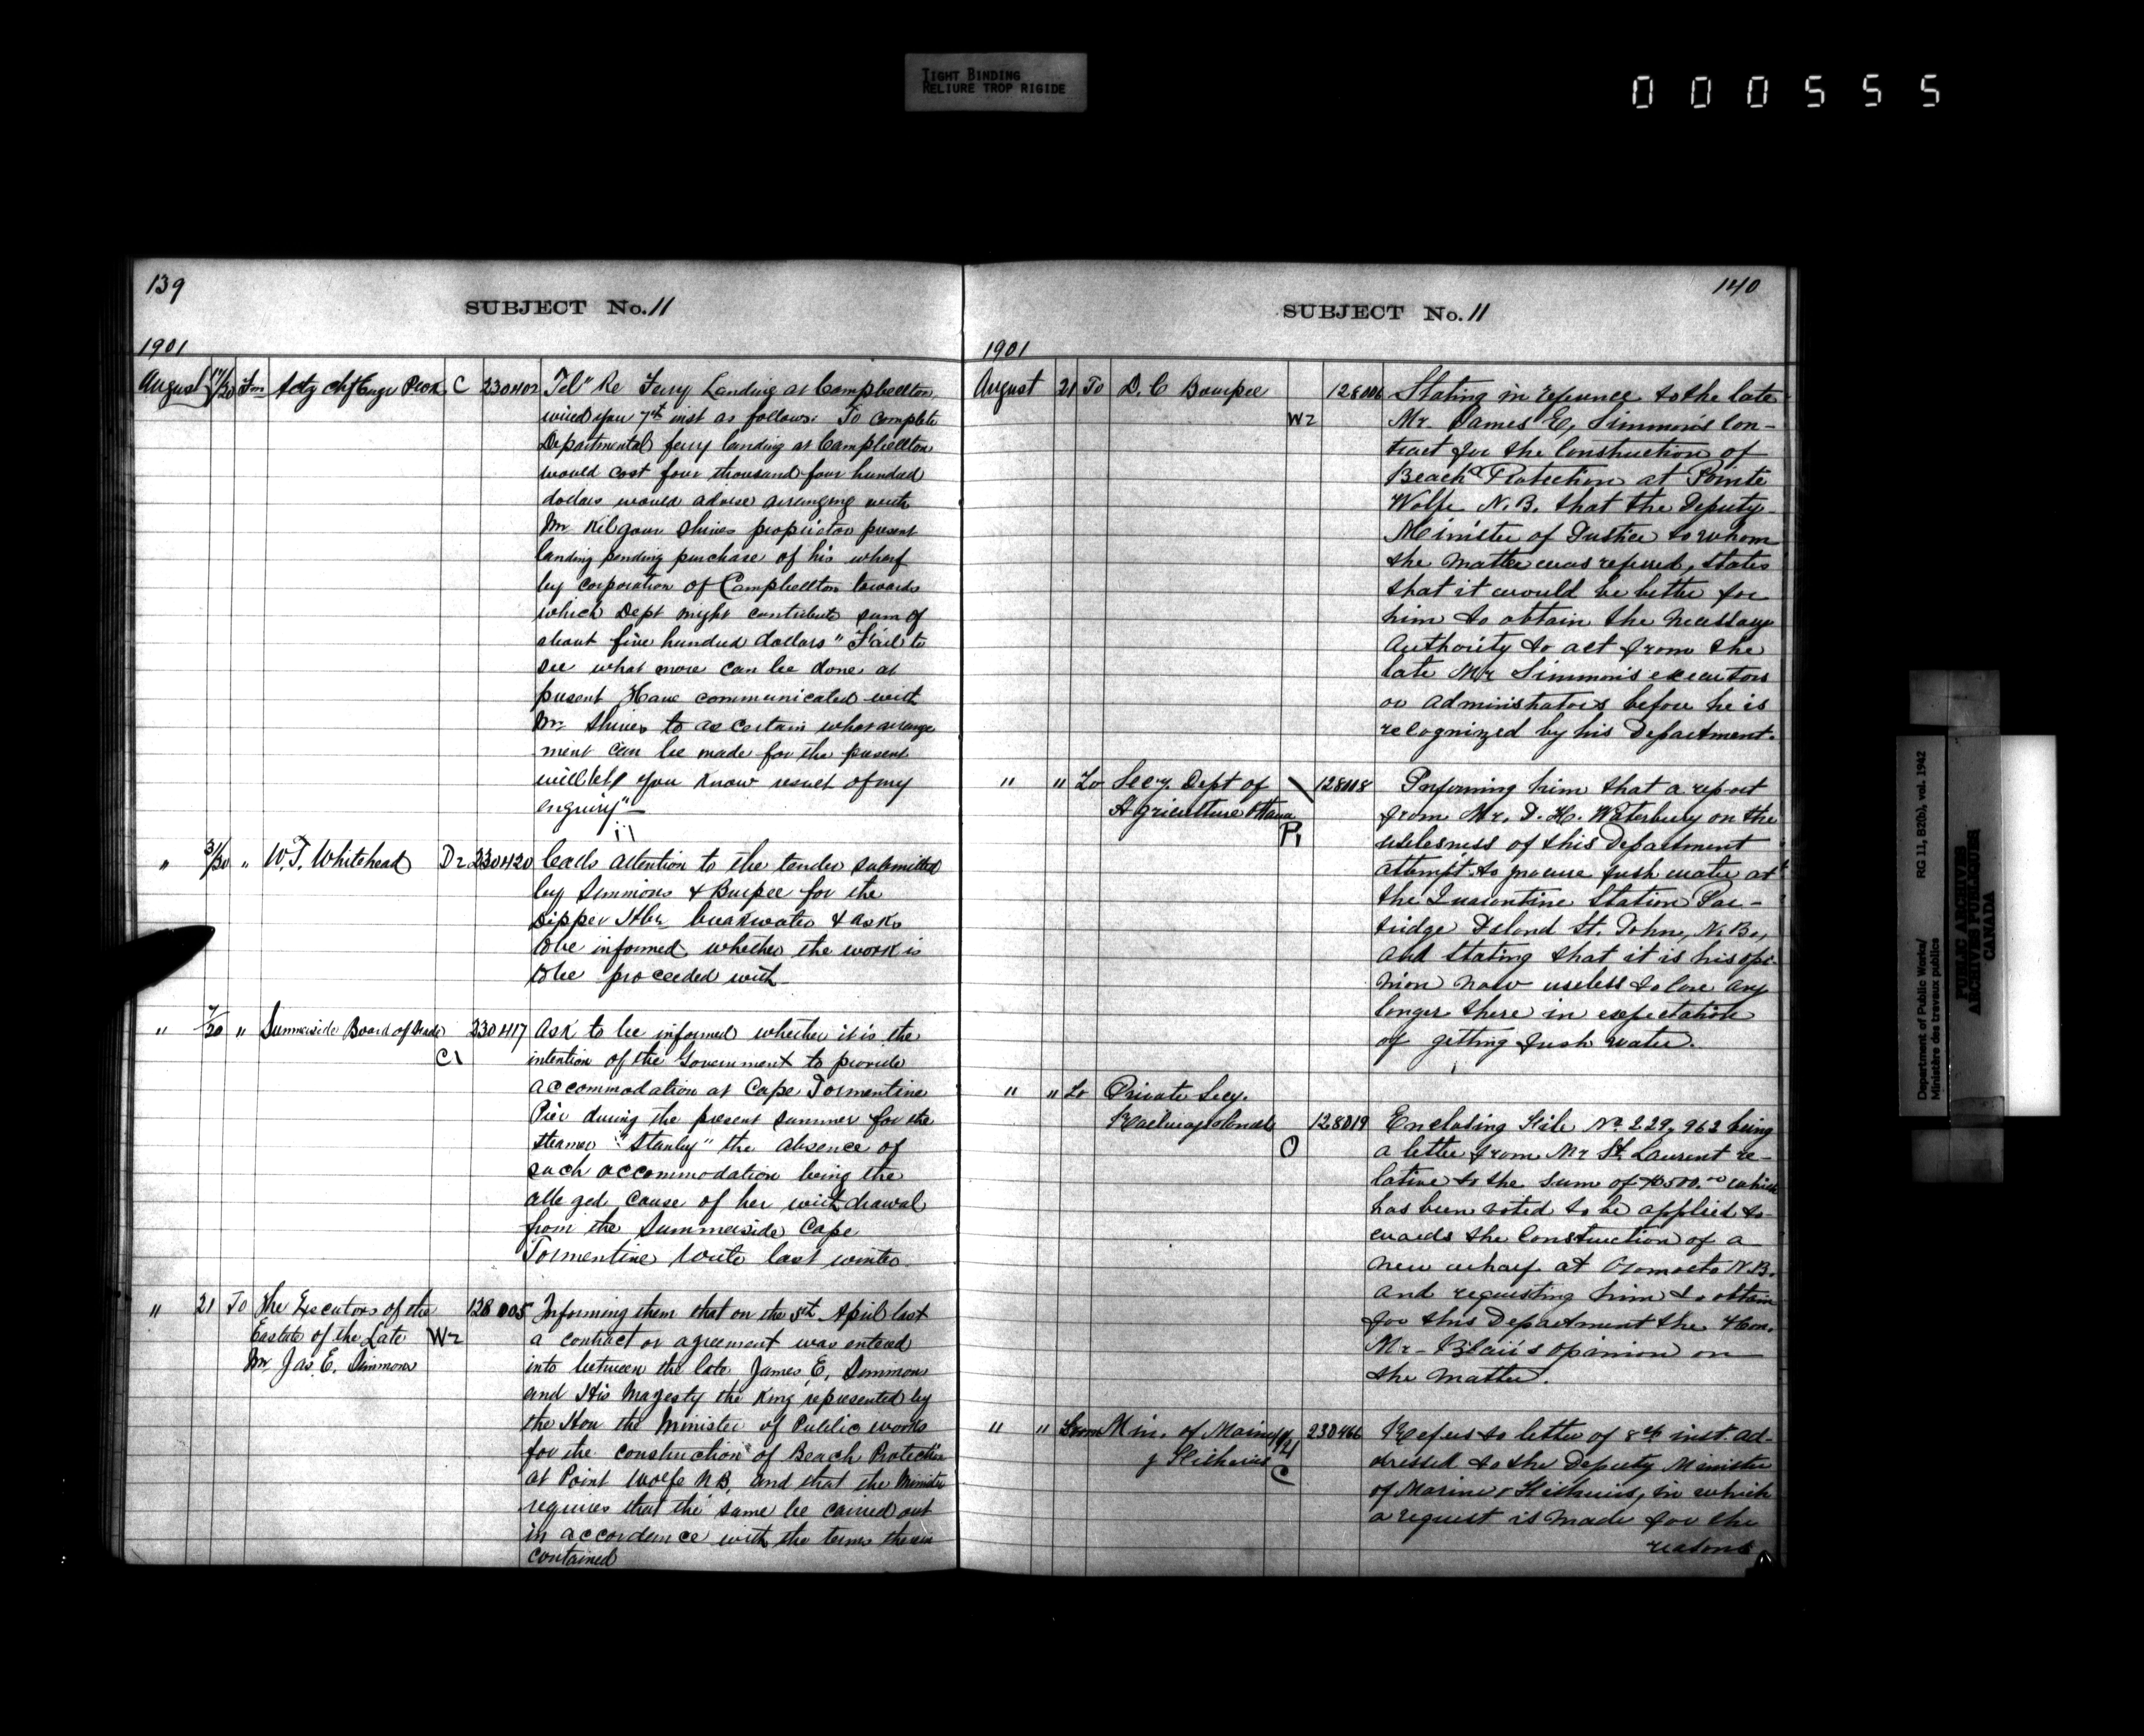 TIGHT BINDING
RELIURE TROP RIGIDE
000555
139
SUBJECT No. 11
1901
August 17/20 Fm Actg Chf Engr Peck C 230402 Tel" Re Ferry Landing at Campbellton
wired you 7th inst as follows: To complete
Departmental ferry landing at Campbellton
would cost four thousand four hundred
dollars would advise arranging with
Mr Kilgour Shives proprietor present
landing pending purchase of his wharf
by corporation of Campbellton towards
which Dept might contribute sum of
about five hundred dollars" Fail to
see what more can be done at
present Have communicated with
Mr Shives to ascertain what arrange
ment can be made for the present
will let you know result of my
enquiry"
" 31/20 " W.T. Whitehead D2 230420 Calls attention to the tender submitted
by Simmons & Burpee for the
Dipper Hbr. breakwater & asks
to be informed whether the work is
to be proceeded with
" 7/20 " Summerside Board of Trade 230417 Ask to be informed whether it is the
C1 intention of the Government to provide
accommodation at Cape Tormentine
Pier during the present summer for the
steamer "Stanley" the absence of
such accommodation being the
alleged cause of her withdrawal
from the Summerside Cape
Tormentine route last winter.
" 21 To The Executors of the 128005 Informing them that on the 5th April last
Eastate of the Late W2 a contract or agreement was entered
Mr Jas. E. Simmons into between the late James E. Simmons
and His Magesty the King represented by
the Hon the Minister of Public works
for the construction of Beach Protection
at Point Wolfe N.B. and that the Minister
requires that the same be carried out
in accordance with the terms therein
contained
140
SUBJECT No. 11
1901
August 21 To D. C Bourpee 128006 Stating in reference to the late
W2 Mr. James E, Simmon's Con-
tract for the Construction of
Beach Protection at Pointe
Wolfe N.B. that the Deputy
Minister of Justice to whom
the matter was referred, states
that it would be better for
him to obtain the necessary
authority to act from the
late Mr Simmon's executors
or administrators before he is
recognized by his Department.
" " To Secy. Dept of 128018 Informing him that a report
Agriculture Ottawa from Mr. D. H. Waterbury on the
P1 uselesness of this Department
attempt to procure fresh water at
the Quarantine Station Par-
tridge Island St. John, N.B.,
and stating that it is his opi-
nion now useless to bore any
longer there in expectation
of getting fresh water.
" " To Private Secy.
Railways & Canals 128019 Enclosing File No 229,962 being
O a letter from Mr St. Laurent re-
lative to the sum of $500.00 which
has been voted to be applied to
wards the Construction of a
new wharf at Oromocto N.B.
and requesting him to obtain
for this Department the Hon.
Mr- Blair's opinion on
the matter.
" " From Min. of Marine 230466 Refers to letter of 8th inst. ad-
& Fisheries 21 dressed to the Deputy Minister
C of Marine & Fisheries, in which
a request is made for the
reasons
Department of Public Works/ RG 11, B2(b), vol. 1942
Ministère des travaux publics
PUBLIC ARCHIVES
ARCHIVES PUBLIQUES
CANADA